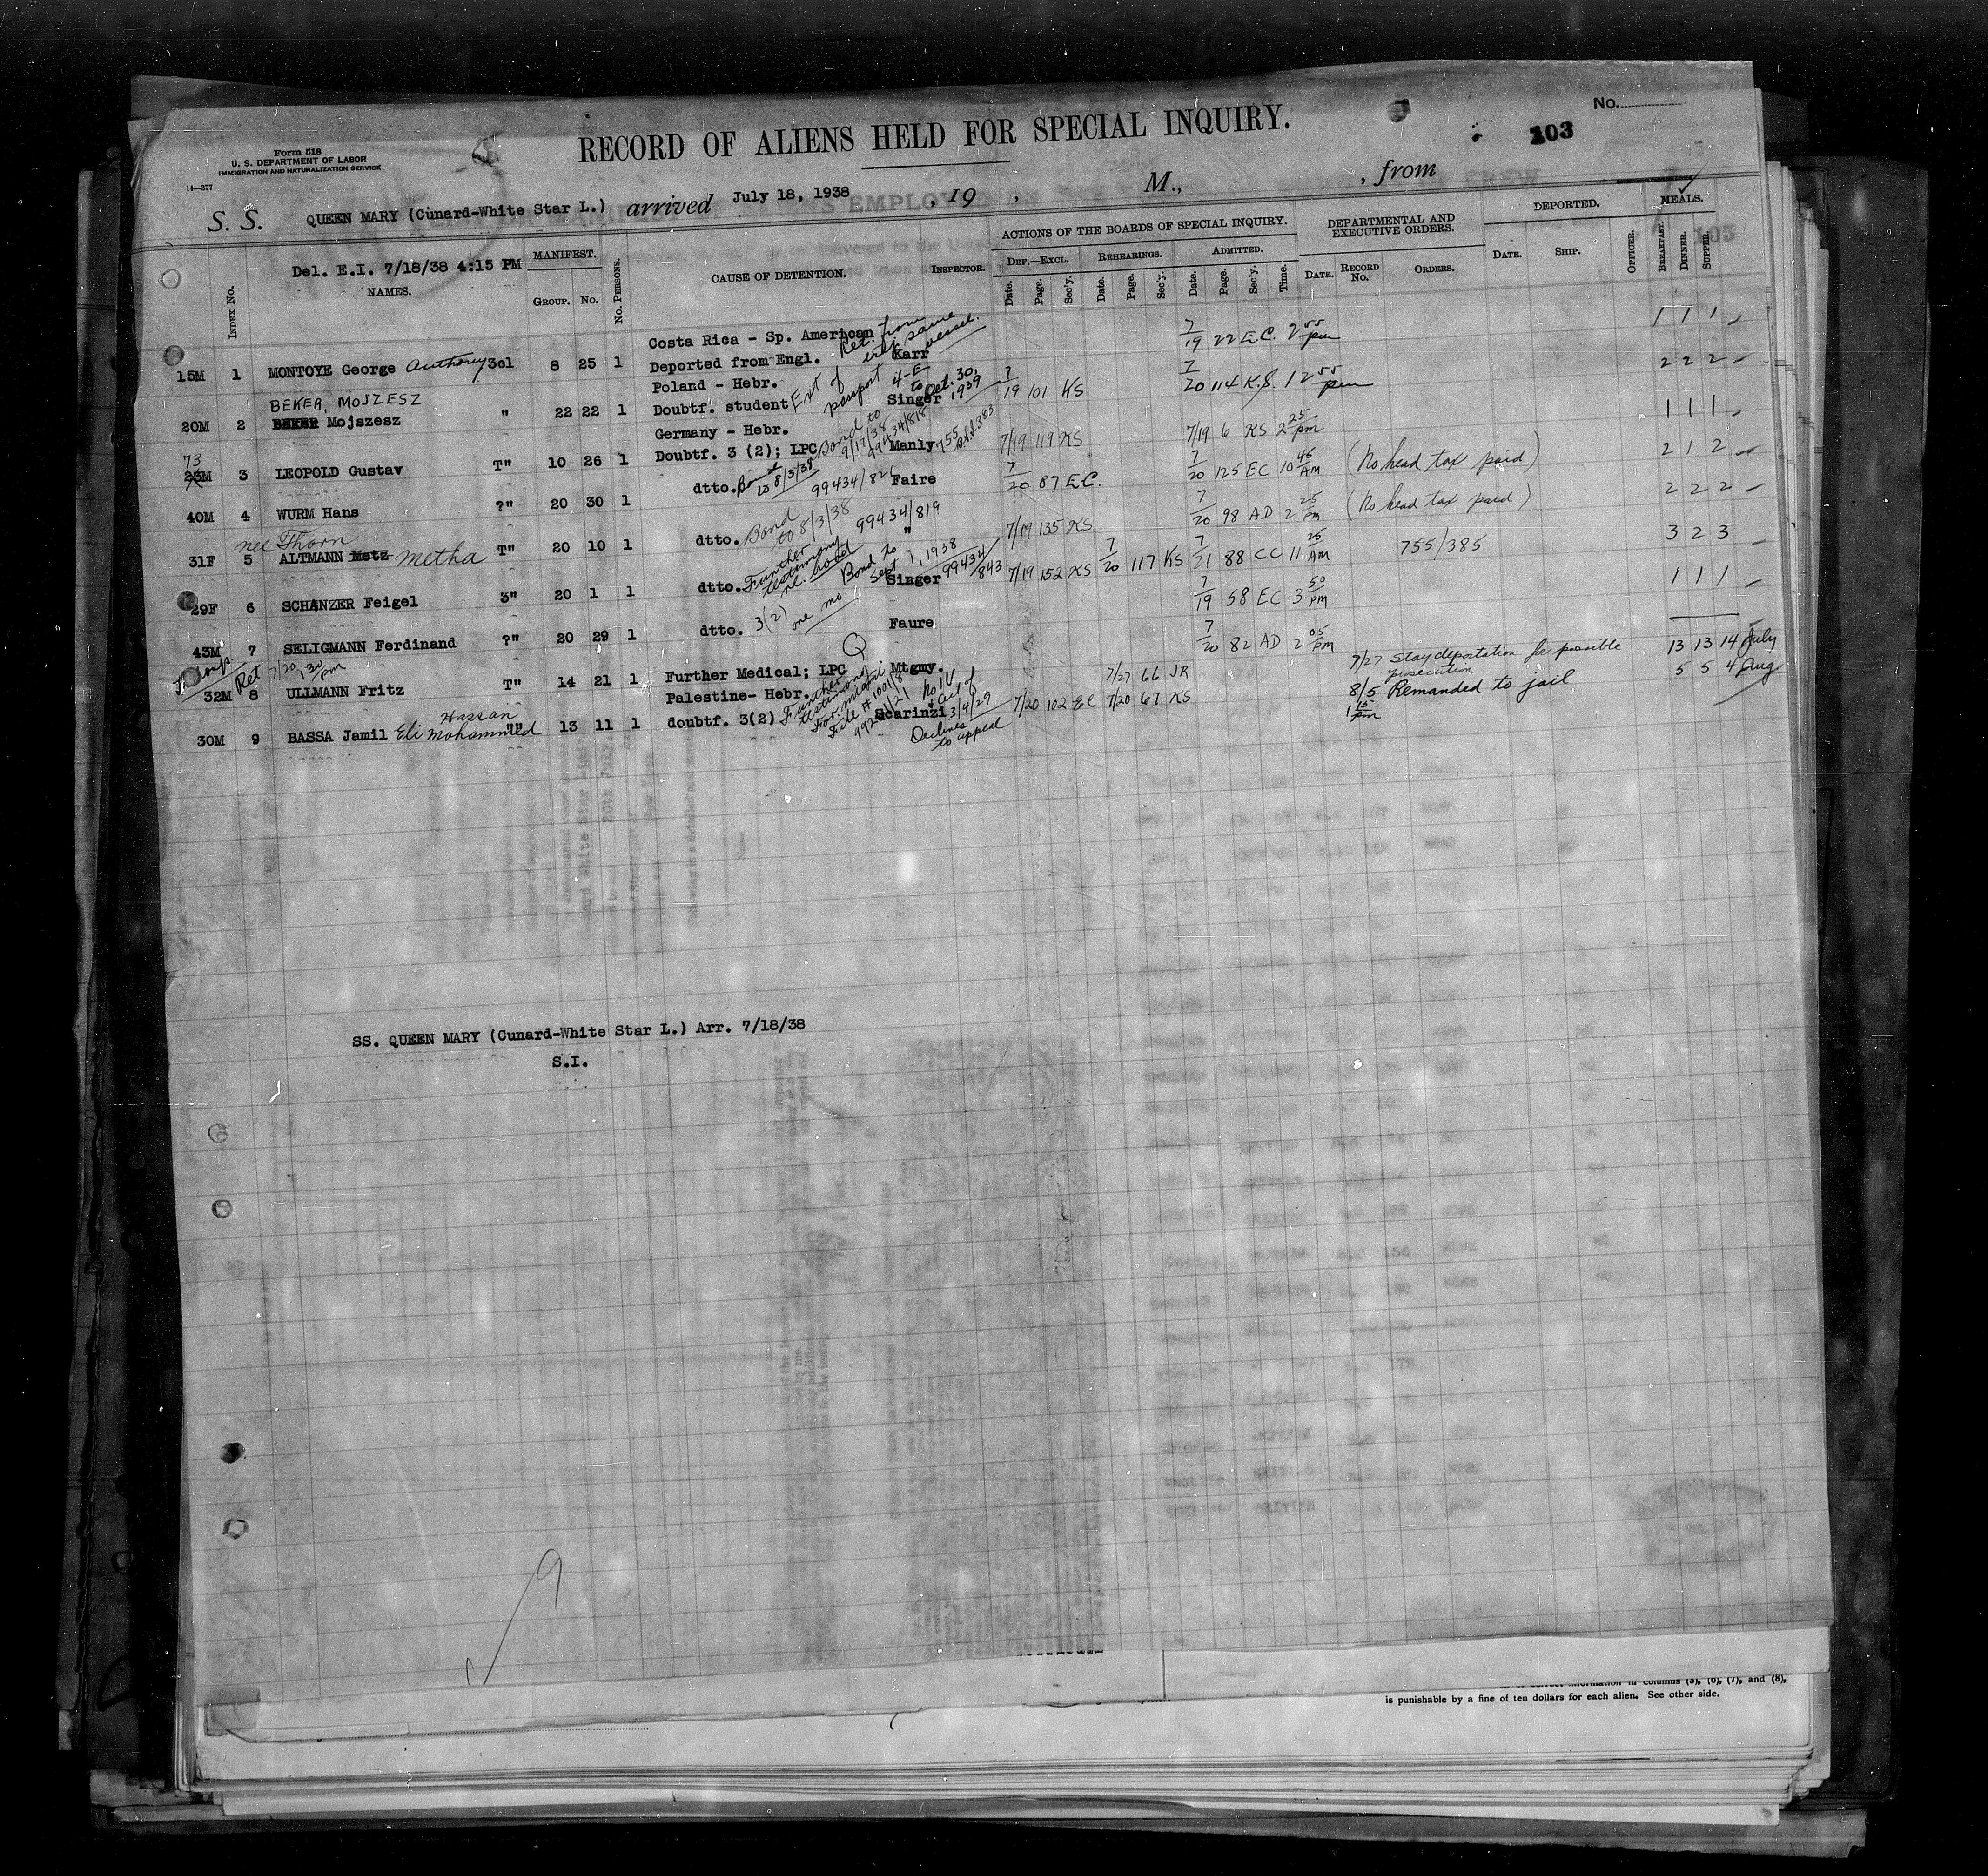 No.
103
RECORD OF ALIENS HELD FOR SPECIAL INQUIRY.
Form 518
U. S. DEPARTMENT OF LABOR
IMMIGRATION AND NATURALIZATION SERVICE
14—377
S. S. QUEEN MARY (Cunard-White Star L.) arrived July 18, 1938, 19 , M., , from
Del. E.I. 7/18/38 4:15 PM
INDEX No. NAMES. MANIFEST. GROUP. No. No. PERSONS. CAUSE OF DETENTION. INSPECTOR.
ACTIONS OF THE BOARDS OF SPECIAL INQUIRY. DEF.—EXCL. Date. Page. Sec'y. REHEARINGS. Date. Page. Sec'y. ADMITTED. Date. Page. Sec'y. Time.
DEPARTMENTAL AND EXECUTIVE ORDERS. DATE. RECORD No. ORDERS.
DEPORTED. DATE. SHIP. OFFICER. MEALS. BREAKFAST. DINNER. SUPPER.
Costa Rica - Sp. American
15M 1 MONTOYE George Anthony 3cl 8 25 1 Deported from Engl. Ret. from same vessel. Karr 7/19 22 E.C. 2 55 pm 1 1 1
Poland - Hebr.
BEKER, MOJZESZ
20M 2 BEKER Mojszesz " 22 22 1 Doubtf. student Ext of passport 4-E to Oct. 30, 1939 Singer 7/19 101 KS 7/20 114 K.S. 1 55 pm 2 2 2
Germany - Hebr.
73
23M 3 LEOPOLD Gustav T" 10 26 1 Doubtf. 3 (2); LPC Bond to 9/17/38 99434/818 Manly 7/19 119 KS 7/19 6 KS 2 25 pm 1 1 1
40M 4 WURM Hans ?" 20 30 1 dtto. Bond to 8/3/38 99434/82 Faire 7/20 87 E.C. 7/20 125 EC 10 45 AM (No head tax paid) 2 1 2
nee Thorn
31F 5 ALTMANN Metz Metha T" 20 10 1 dtto. Bond to 8/3/38 99434/819 " 7/19 135 KS 7/20 98 AD 2 25 pm (No head tax paid) 2 2 2
29F 6 SCHANZER Feigel 3" 20 1 1 dtto. Further testimony re. bond Bond to Sept 7, 1938 99434/843 Singer 7/19 152 KS 7/20 117 KS 7/21 88 CC 11 25 AM 755/385 3 2 3
43M 7 SELIGMANN Ferdinand ?" 20 29 1 dtto. 3(2) one mo. Faure 7/19 58 EC 3 50 pm 1 1 1
Ret 7/20 1 30 pm
32M 8 ULLMANN Fritz T" 14 21 1 Further Medical; LPC Mtgmy. 7/20 82 AD 2 05 pm
Palestine- Hebr.
30M 9 BASSA Jamil Eli Hassan Mohammed "" 13 11 1 doubtf. 3(2) Further testimony Scarinzi no IV & act of 3/4/29 Declines to appeal 7/20 102 EC 7/27 66 JR 7/20 67 KS
7/27 Stay deportation for possible prosecution 13 13 14 July
8/5 Remanded to jail 5 5 4 Aug
1 15 pm
SS. QUEEN MARY (Cunard-White Star L.) Arr. 7/18/38
S.I.
9
is punishable by a fine of ten dollars for each alien. See other side.